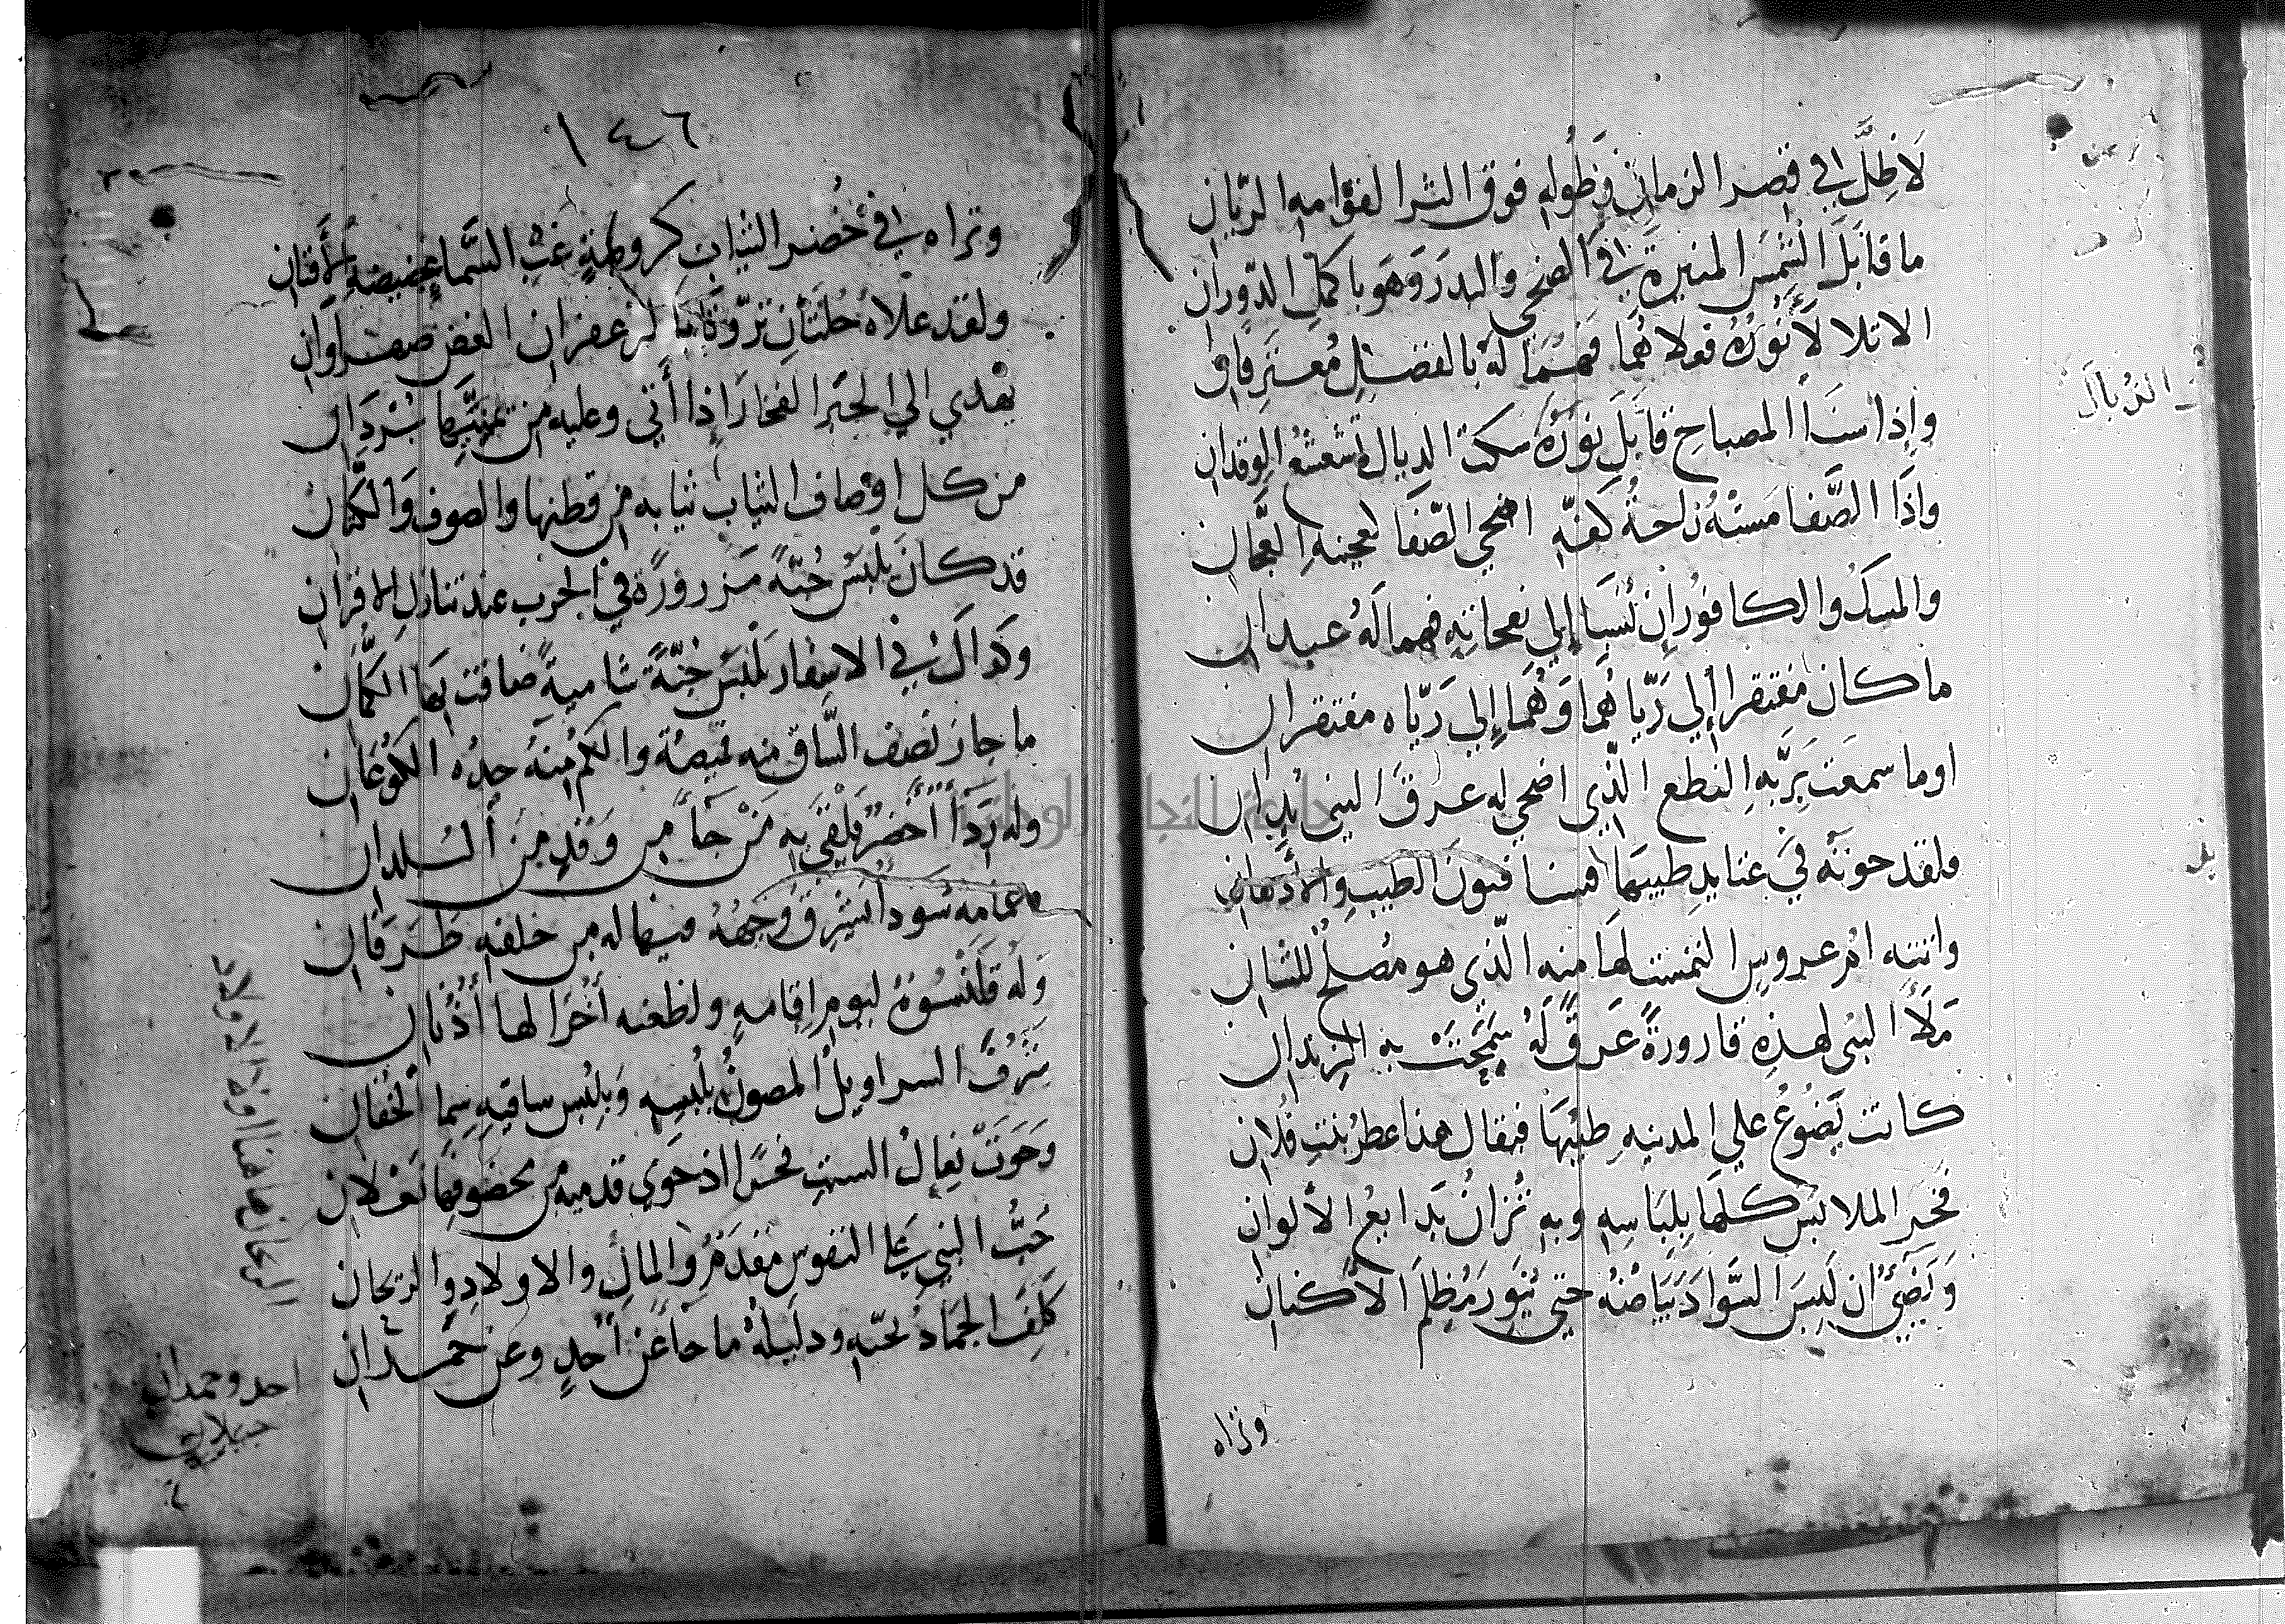 لا ظل في قصر الزمان وطوله فوق الثرا لقوامه الريان
ما قابل الشمس المنيرة في الضحى والبدر وهو باكمل الدوران
الا تلالا نوره فعلاهما فهما له بالفضل معترفان
واذا سنا المصباح قابل نوره سكت الذبال تشعشع الوقدان
واذا الصفا مسته راحة كفه اضحي الصفا كعجينة العجان
والمسك والكافور ان نسبا إلي نفحاته فهما له عبدان
ما كان مفتقرا إلي رياهما وهما إلي رياه مفتقران
اوما سمعت بربة النطع الذي اضحي له عرق النبي يدان
فلقد حوته في عتايد طيبها فسا فنون الطيب والأدهان
واتته ام عروس التمست لها منه الذي هو مصلح للشان
ملا النبي لهذه قارورة عرق له سمحت به الزندان
كانت يضوع علي المدينه طيبها فيقال هذا عطر بنت فلان
فخر الملابس كلها بلباسه وبه تزان بدايع الألوان
ويضئ ان لبس السواد بياضه حتي ينور مظلم الاكنان
وتراه
الذبال
١٤٦
وتراه في خضر الثياب كروضة غب السماء غضيضة الأفنان
ولقد علاه حلتان تروتا بالزعفران الغض صفراوان
يهدي الي الحبر الفخار إذا أتي وعليه من تمنيتها بردان
من كل اوصاف الثياب ثيابه من قطنها والصوف والكتان
قد كان يلبس جبة مزرورة في الحرب عند تنازل الاقران
وكذاك في الاسفار يلبس جبة شامية ضاقت بها الكمان
ما جاز نصف الساق منه قميصه والكم منه حده الكوعان
وله ردا أخضر يلقي به من جا من وفد من البلدان
وعمامه سودا يشرق وجهه فيها له من خلفه طرفان
وله قلنسوة ليوم اقامه ولظعنه أخرا لها أذنان
شرف السراويل المصون بلبسه وبلبس ساقيه سما الخفان
وحوت نعال السبت فخرا اذ حوي قدميه من مخصوفها نعلان
حب النبي علي النفوس مقدم والمال والاولاد والريحان
كلف الجماد بحبه ودليله ما جا عن أحد وعن حمدان
احد وحمدان
جبلان